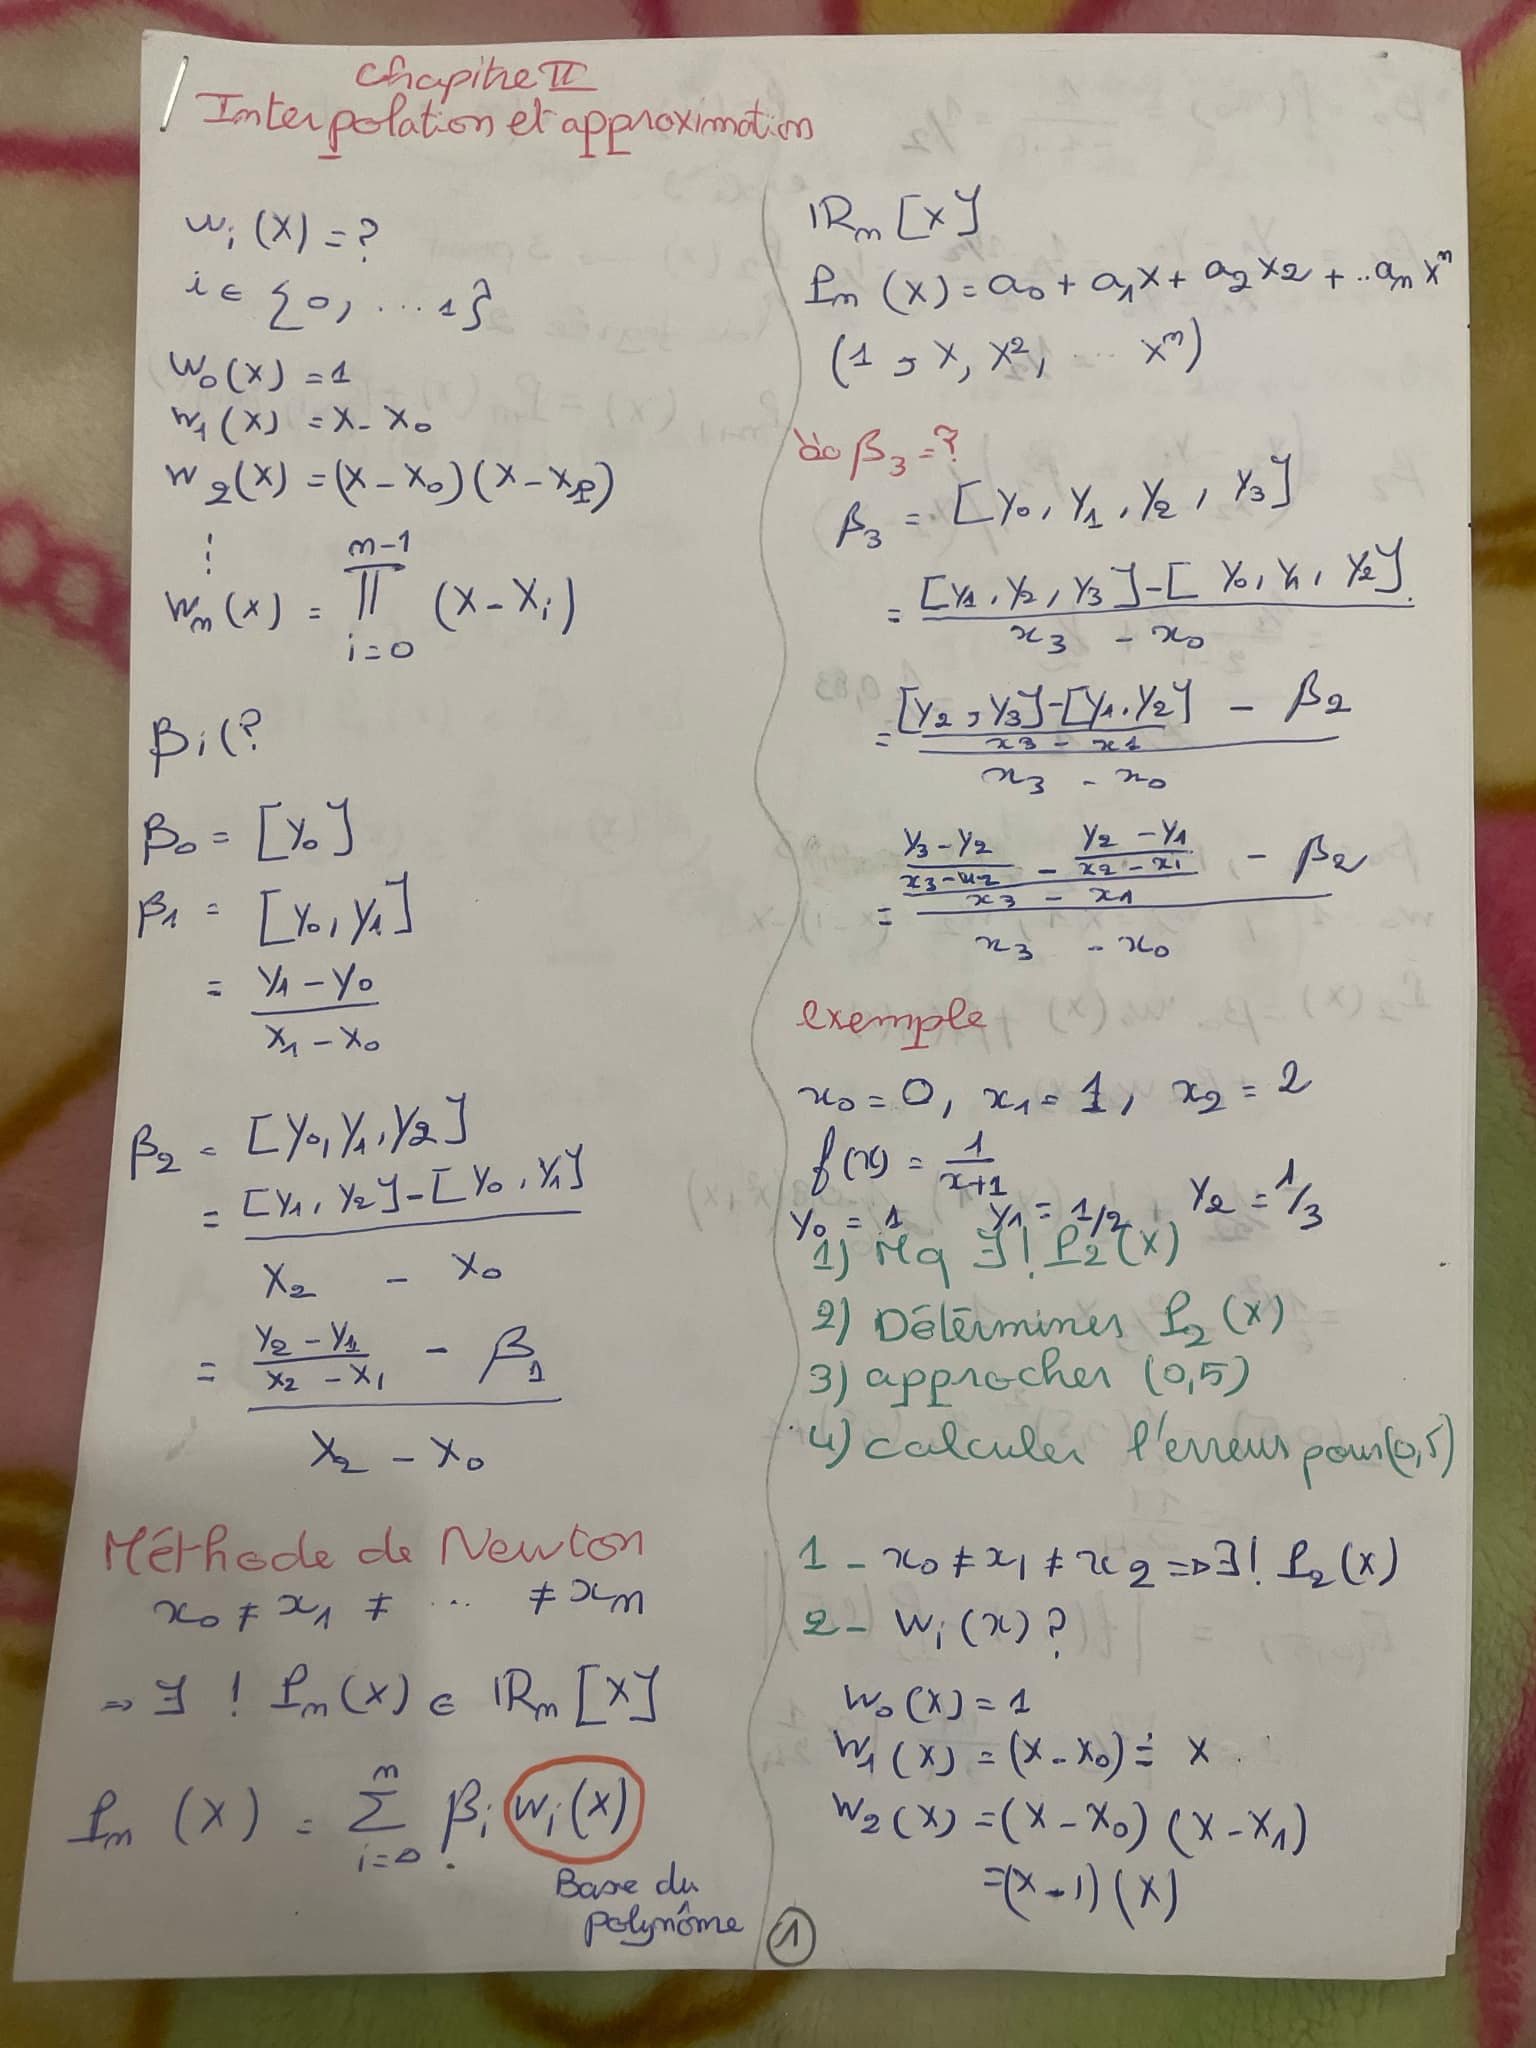 Chapitre II
Interpolation et approximation
Wi (X) = ?
i ∈ {0, ... 1}
W0 (X) = 1
W1 (X) = X - X0
W2 (X) = (X - X0) (X - X1)
⋮
Wn (X) = ∏_{i=0}^{n-1} (X - Xi)
βi (?
β0 = [Y0]
β1 = [Y0, Y1]
= (Y1 - Y0) / (X1 - X0)
β2 = [Y0, Y1, Y2]
= ([Y1, Y2] - [Y0, Y1]) / (X2 - X0)
= ((Y2 - Y1) / (X2 - X1) - β1) / (X2 - X0)
Méthode de Newton
x0 ≠ x1 ≠ ... ≠ xn
⇒ ∃ ! Pn (X) ∈ IRn [X]
Pn (X) = ∑_{i=0}^{n} βi Wi (X)
Base du
polynôme
IRn [X]
Pn (X) = a0 + a1 X + a2 X2 + .. an X^n
(1, X, X², ... X^n)
β3 = ?
β3 = [Y0, Y1, Y2, Y3]
= ([Y1, Y2, Y3] - [Y0, Y1, Y2]) / (x3 - x0)
= (([Y2, Y3] - [Y1, Y2]) / (x3 - x1) - β2) / (x3 - x0)
= (((Y3 - Y2) / (x3 - x2) - (Y2 - Y1) / (x2 - x1)) / (x3 - x1) - β2) / (x3 - x0)
exemple
x0 = 0, x1 = 1, x2 = 2
f(x) = 1 / (x+1)
Y0 = 1 Y1 = 1/2, Y2 = 1/3
1) Mq ∃! P2 (X)
2) Déterminer P2 (X)
3) approcher (0,5)
4) calculer l'erreur pour (0,5)
1 - x0 ≠ x1 ≠ x2 ⇒ ∃! P2 (X)
2 - Wi (x) ?
W0 (X) = 1
W1 (X) = (X - X0) = X
W2 (X) = (X - X0) (X - X1)
= (X - 1) (X)
1